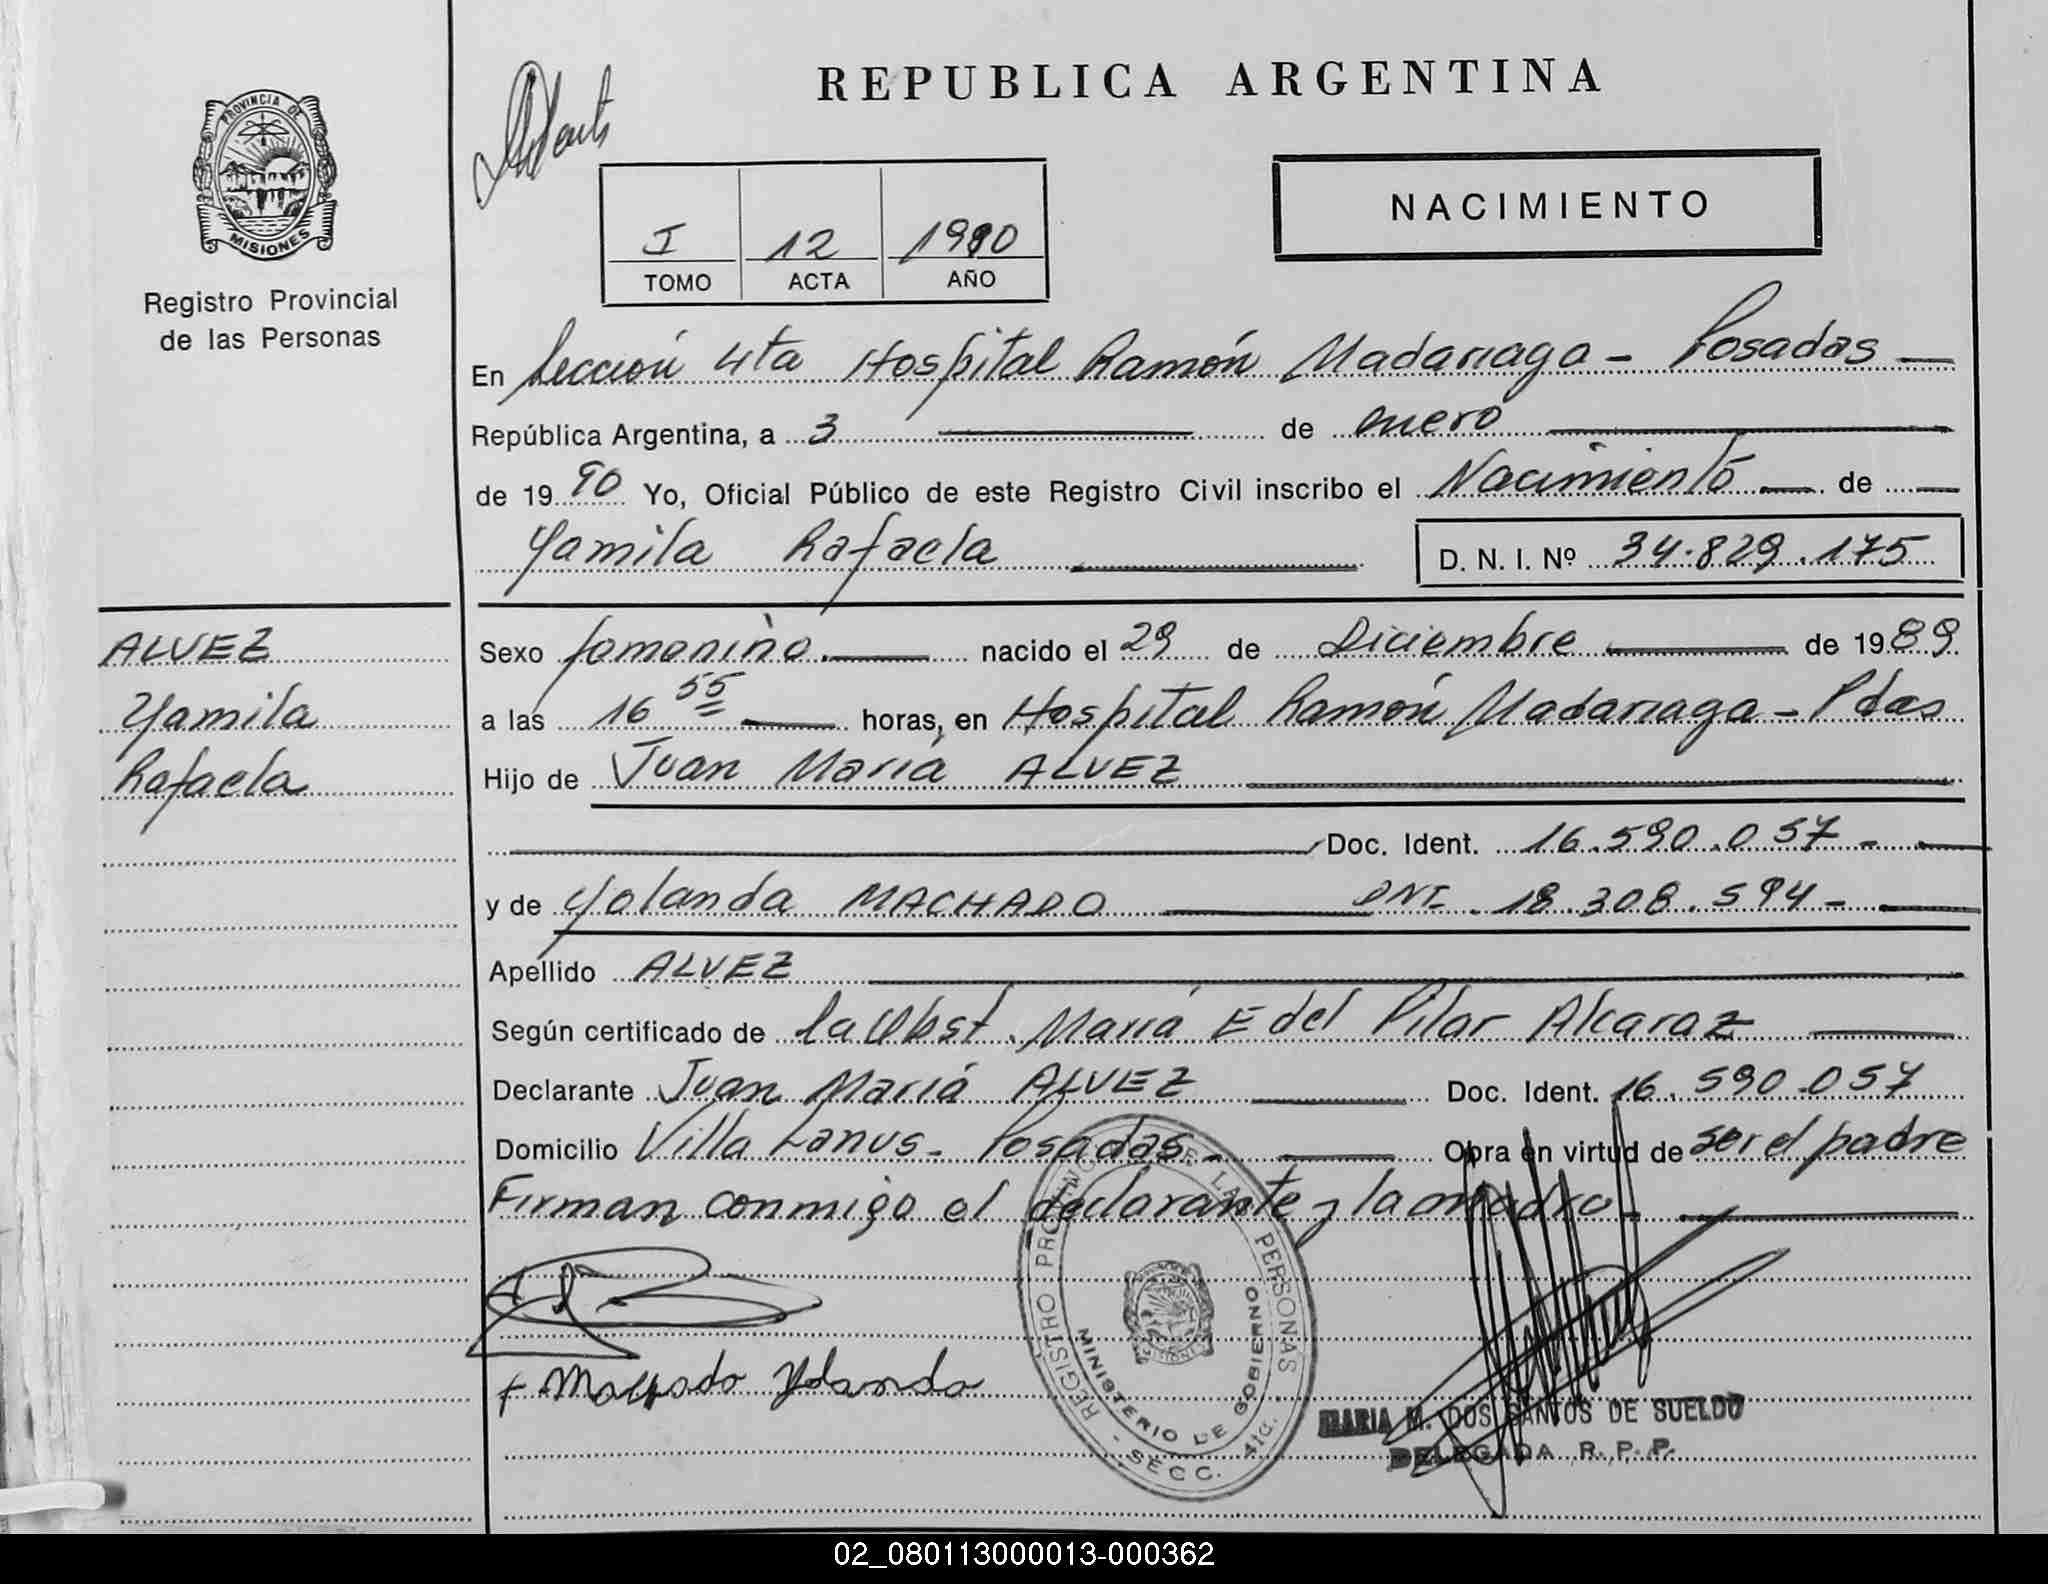 REPUBLICA ARGENTINA
PROVINCIA DE
MISIONES
Registro Provincial
de las Personas
NACIMIENTO
I 12 1990
TOMO ACTA AÑO
En Sección 4ta Hospital Ramón Madariaga - Posadas
República Argentina, a 3 de enero
de 19 90 Yo, Oficial Público de este Registro Civil inscribo el Nacimiento de
Yamila Rafaela D. N. I. Nº 34.829.175
ALVEZ
Yamila
Rafaela
Sexo femenino. nacido el 29 de Diciembre de 1989
a las 16 55 horas, en Hospital Ramón Madariaga - Pdas
Hijo de Juan María ALVEZ
Doc. Ident. 16.590.057 -
y de Yolanda MACHADO DNI. 18.308.594 -
Apellido ALVEZ
Según certificado de la Obst. María E del Pilar Alcaraz
Declarante Juan María ALVEZ Doc. Ident. 16.590.057
Domicilio Villa Lanus - Posadas - Obra en virtud de ser el padre
Firman conmigo el declarante y la madre -
Machado Yolanda
REGISTRO PROVINCIAL DE LAS PERSONAS
MINISTERIO DE GOBIERNO
- SECC. 4ta.
MARIA M. DOS SANTOS DE SUELDO
DELEGADA R. P. P.
02_080113000013-000362